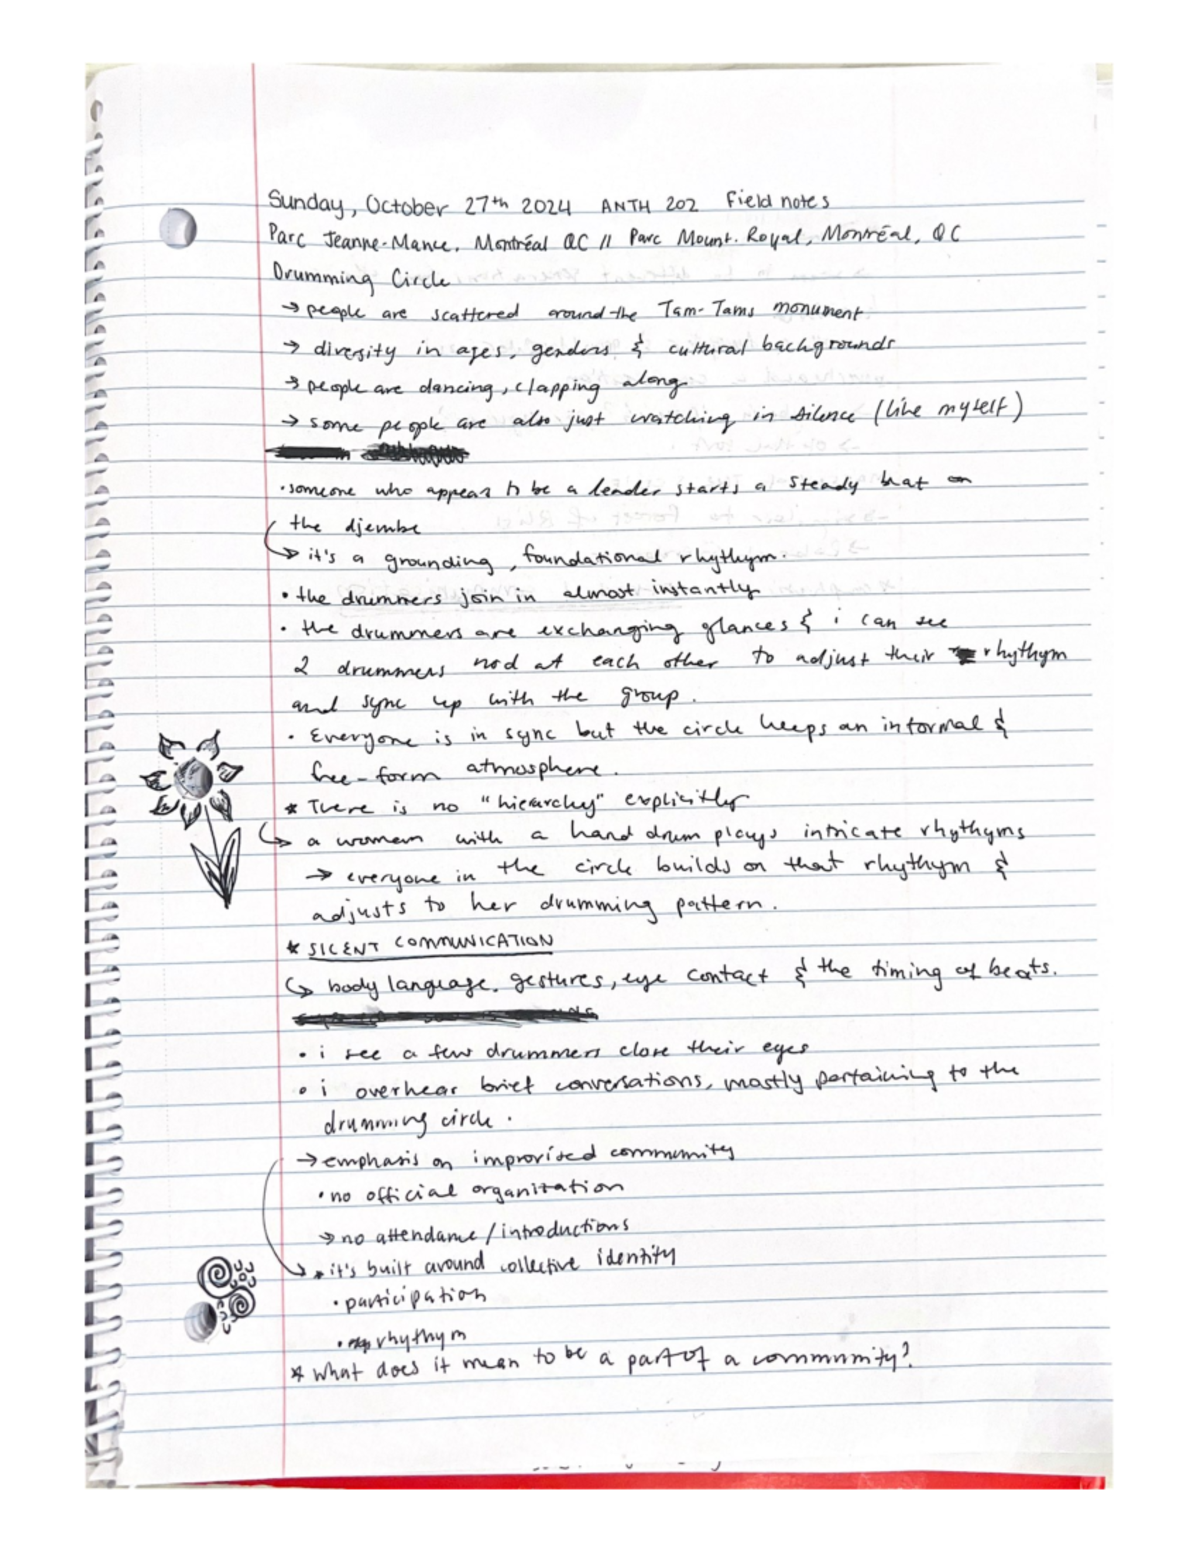 Sunday, October 27th 2024 ANTH 202 Field notes
Parc Jeanne-Mance, Montréal QC // Parc Mount-Royal, Montréal, QC
Drumming Circle
→ people are scattered around the Tam-Tams monument
→ diversity in ages, genders & cultural backgrounds
→ people are dancing, clapping along
→ some people are also just watching in silence (like myself)
• someone who appears to be a leader starts a steady beat on
the djembe
→ it's a grounding, foundational rhythym.
• the drummers join in almost instantly
• the drummers are exchanging glances & i can see
2 drummers nod at each other to adjust their rhythym
and sync up with the group.
• Everyone is in sync but the circle keeps an informal &
free-form atmosphere.
* There is no "hierarchy" explicitly
↳ a women with a hand drum plays intricate rhythyms
→ everyone in the circle builds on that rhythym &
adjusts to her drumming pattern.
* SILENT COMMUNICATION
↳ body language, gestures, eye contact & the timing of beats.
• i see a few drummers close their eyes
• i overhear brief conversations, mostly pertaining to the
drumming circle.
→ emphasis on improvised community
• no official organization
→ no attendance/introductions
→ * it's built around collective identity
• participation
• rhythym
* What does it mean to be a part of a community?